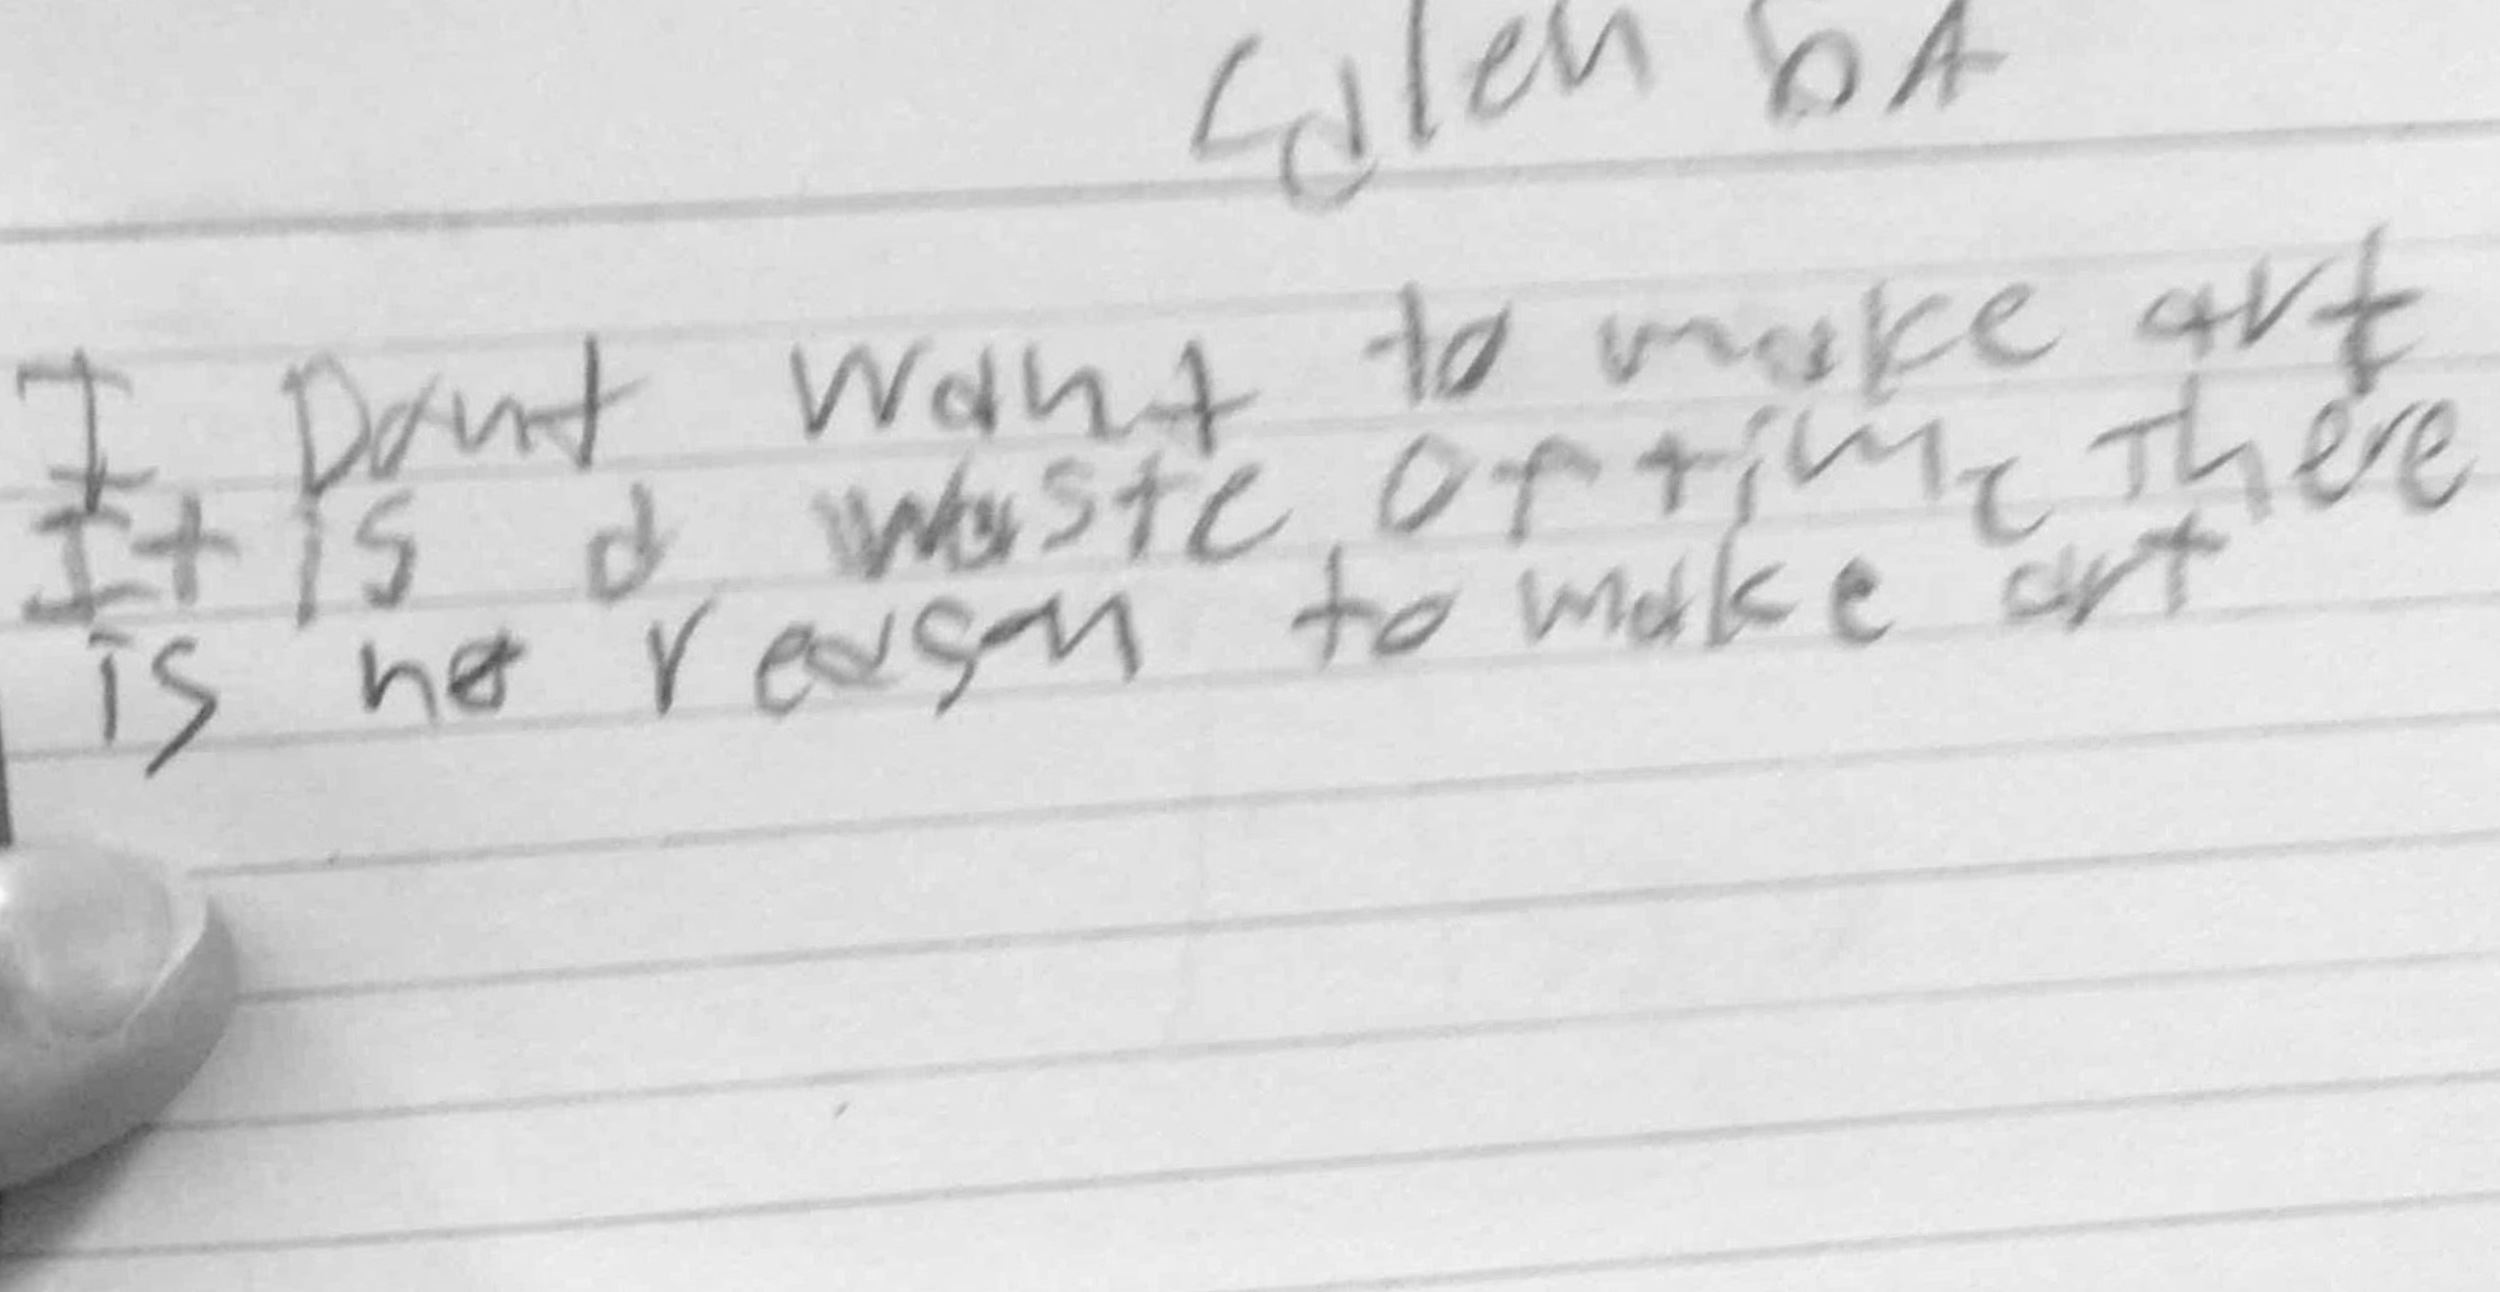 Calen 6A
I Dont want to make art
It is a waste of time There
is no reason to make art